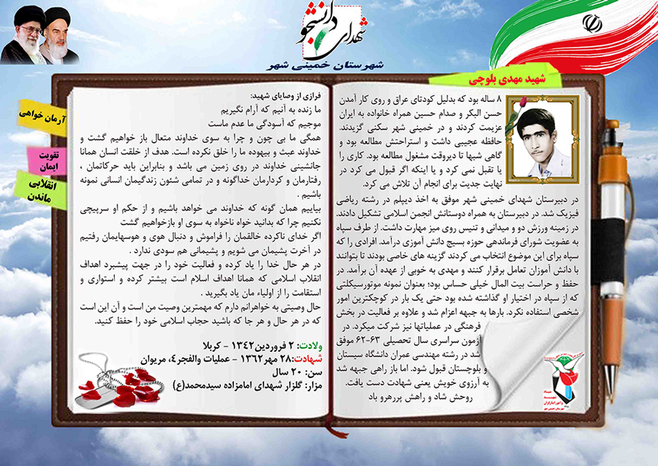 شهدای دانشجو
شهرستان خمینی شهر
شهید مهدی بلوچی
۸ ساله بود که بدلیل کودتای عراق و روی کار آمدن
حسن البکر و صدام حسین همراه خانواده به ایران
عزیمت کردند و در خمینی شهر سکنی گزیدند.
حافظه عجیبی داشت و استراحتش مطالعه بود و
گاهی شبها تا دیروقت مشغول مطالعه بود. کاری را
یا تقبل نمی کرد و یا اینکه اگر قبول می کرد در
نهایت جدیت برای انجام آن تلاش می کرد.
در دبیرستان شهدای خمینی شهر موفق به اخذ دیپلم در رشته ریاضی
فیزیک شد. در دبیرستان به همراه دوستانش انجمن اسلامی تشکیل دادند.
در زمینه ورزش دو و میدانی و تنیس روی میز مهارت داشت. از طرف سپاه
به عضویت شورای فرماندهی حوزه بسیج دانش آموزی درآمد. افرادی را که
سپاه برای این موضوع انتخاب می کردند گزینه های خاصی بودند تا بتوانند
با دانش آموزان تعامل برقرار کنند و مهدی به خوبی از عهده آن برآمد. در
حفظ و حراست بیت المال خیلی حساس بود؛ بعنوان نمونه موتورسیکلتی
که از سپاه در اختیار او گذاشته شده بود حتی یک بار در کوچکترین امور
شخصی استفاده نکرد. بارها به جبهه اعزام شد و علاوه بر فعالیت در بخش
فرهنگی در عملیاتها نیز شرکت میکرد. در
آزمون سراسری سال تحصیلی ۶۳-۶۲ موفق
شد در رشته مهندسی عمران دانشگاه سیستان
و بلوچستان قبول شود. اما باز راهی جبهه شد
و به آرزوی خویش یعنی شهادت دست یافت.
روحش شاد و راهش پررهرو باد
آرمان خواهی
تقویت
ایمان
انقلابی
ماندن
فرازی از وصایای شهید:
ما زنده به آنیم که آرام نگیریم
موجیم که آسودگی ما عدم ماست
همگی ما بی چون و چرا به سوی خداوند متعال باز خواهیم گشت و
خداوند عبث و بیهوده ما را خلق نکرده است. هدف از خلقت انسان همانا
جانشینی خداوند در روی زمین می باشد و بنابراین باید حرکاتمان ،
رفتارمان و کردارمان خداگونه و در تمامی شئون زندگیمان انسانی نمونه
باشیم .
بیاییم همان گونه که خداوند می خواهد باشیم و از حکم او سرپیچی
نکنیم چرا که بدانید خواه ناخواه به سوی او بازخواهیم گشت
اگر خدای ناکرده خالقمان را فراموش و دنبال هوی و هوسهایمان رفتیم
در آخرت پشیمان می شویم و پشیمانی هم سودی ندارد .
در هر حال خدا را یاد کرده و فعالیت خود را در جهت پیشبرد اهداف
انقلاب اسلامی که همانا اهداف اسلام است بیشتر کرده و استواری و
استقامت را از اولیاء مان یاد بگیرید .
حال وصیتی به خواهرانم دارم که مهمترین وصیت من است و آن این است
که در هر حال و هر جا که باشید حجاب اسلامی خود را حفظ کنید.
ولادت: ۲ فروردین۱۳۴۲ - کربلا
شهادت: ۲۸ مهر۱۳۶۲ - عملیات والفجر۴، مریوان
سن: ۲۰ سال
مزار: گلزار شهدای امامزاده سیدمحمد(ع)